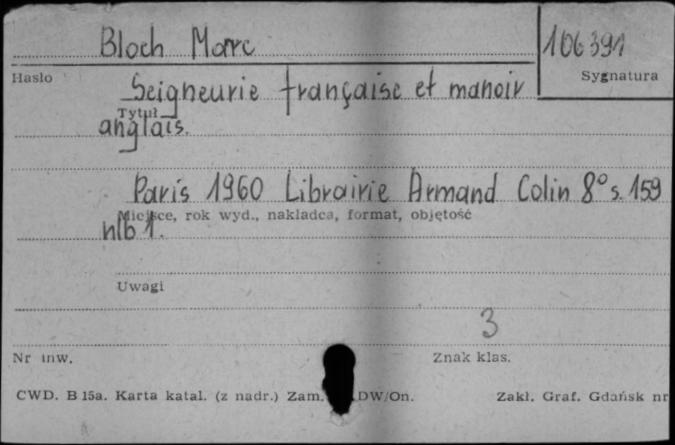 Bloch Marc 106391
Hasło Sygnatura
Seigneurie française et manoir
Tytuł
anglais.
Paris 1960 Librairie Armand Colin 8° s. 159
Miejsce, rok wyd., nakładca, format, objętość
nlb 1.
Uwagi
3
Nr inw. Znak klas.
CWD. B 15a. Karta katal. (z nadr.) Zam. DW/On. Zakł. Graf. Gdańsk nr